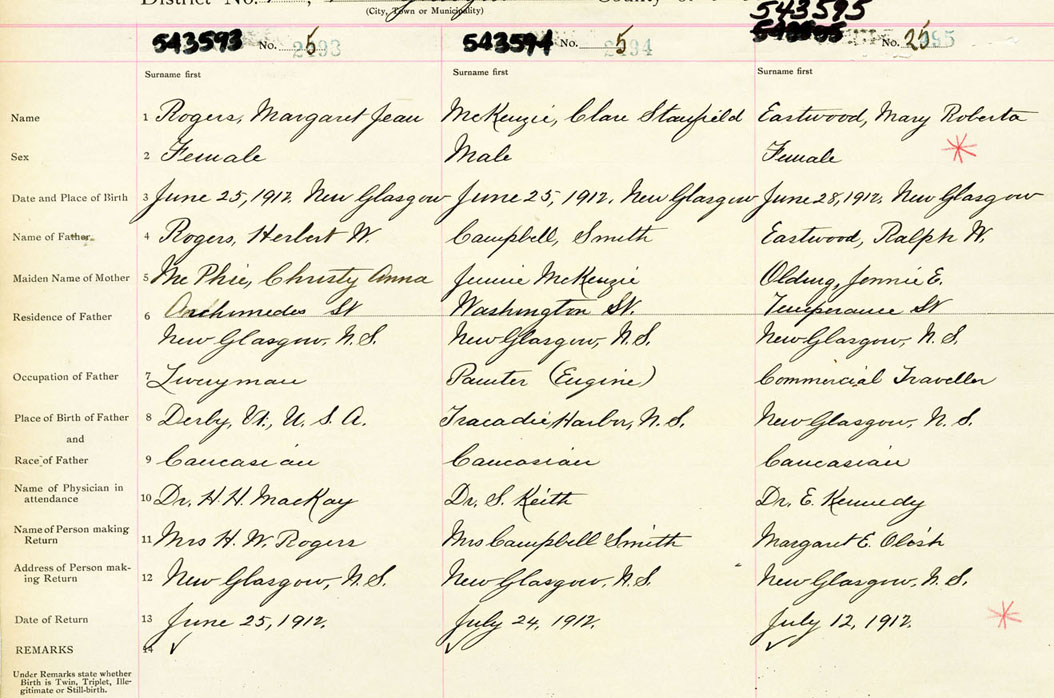 District No.
(City, Town or Municipality)
543595
543593 No. 5 2593
543594 No. 5 2594
No. 25 2595
Surname first Surname first Surname first
Name 1 Rogers, Margaret Jean McKenzie, Clare Stanfield Eastwood, Mary Roberta
Sex 2 Female Male Female
Date and Place of Birth 3 June 25, 1912. New Glasgow June 25, 1912. New Glasgow June 28, 1912. New Glasgow
Name of Father 4 Rogers, Herbert W. Campbell, Smith Eastwood, Ralph W.
Maiden Name of Mother 5 McPhie, Christy Anna Jennie McKenzie Olding, Jennie E.
Residence of Father 6 Archimedes St Washington St. Temperance St
New Glasgow, N.S. New Glasgow, N.S. New Glasgow, N.S.
Occupation of Father 7 (Engine) Commercial Traveller
Place of Birth of Father 8 Derby, Vt., U.S.A. Tracadie Harbor, N.S. New Glasgow, N.S.
and
Race of Father 9 Caucasian Caucasian Caucasian
Name of Physician in
attendance 10 Dr. H.H. MacKay Dr. S. Keith Dr. E. Kennedy
Name of Person making
Return 11 Mrs H. W. Rogers Mrs Campbell Smith Margaret E.
Address of Person mak-
ing Return 12 New Glasgow, N.S. New Glasgow, N.S. New Glasgow, N.S.
Date of Return 13 June 25, 1912. July 24, 1912. July 12, 1912.
REMARKS 14
Under Remarks state whether
Birth is Twin, Triplet, Ille-
gitimate or Still-birth.